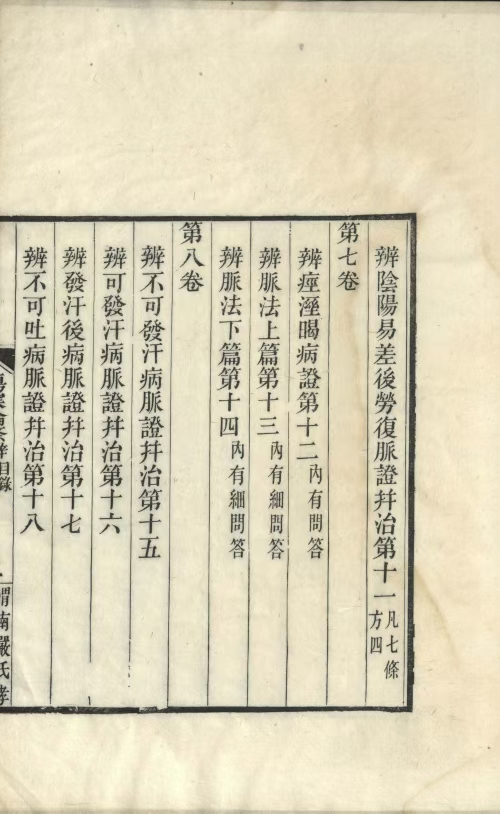 辨陰陽易差後勞復脈證幷治第十一凡七條方四
第七卷
辨痙溼暍病證第十二內有問答
辨脈法上篇第十三內有細問答
辨脈法下篇第十四內有細問答
第八卷
辨不可發汗病脈證幷治第十五
辨可發汗病脈證幷治第十六
辨發汗後病脈證幷治第十七
辨不可吐病脈證幷治第十八
目錄
渭南嚴氏孝